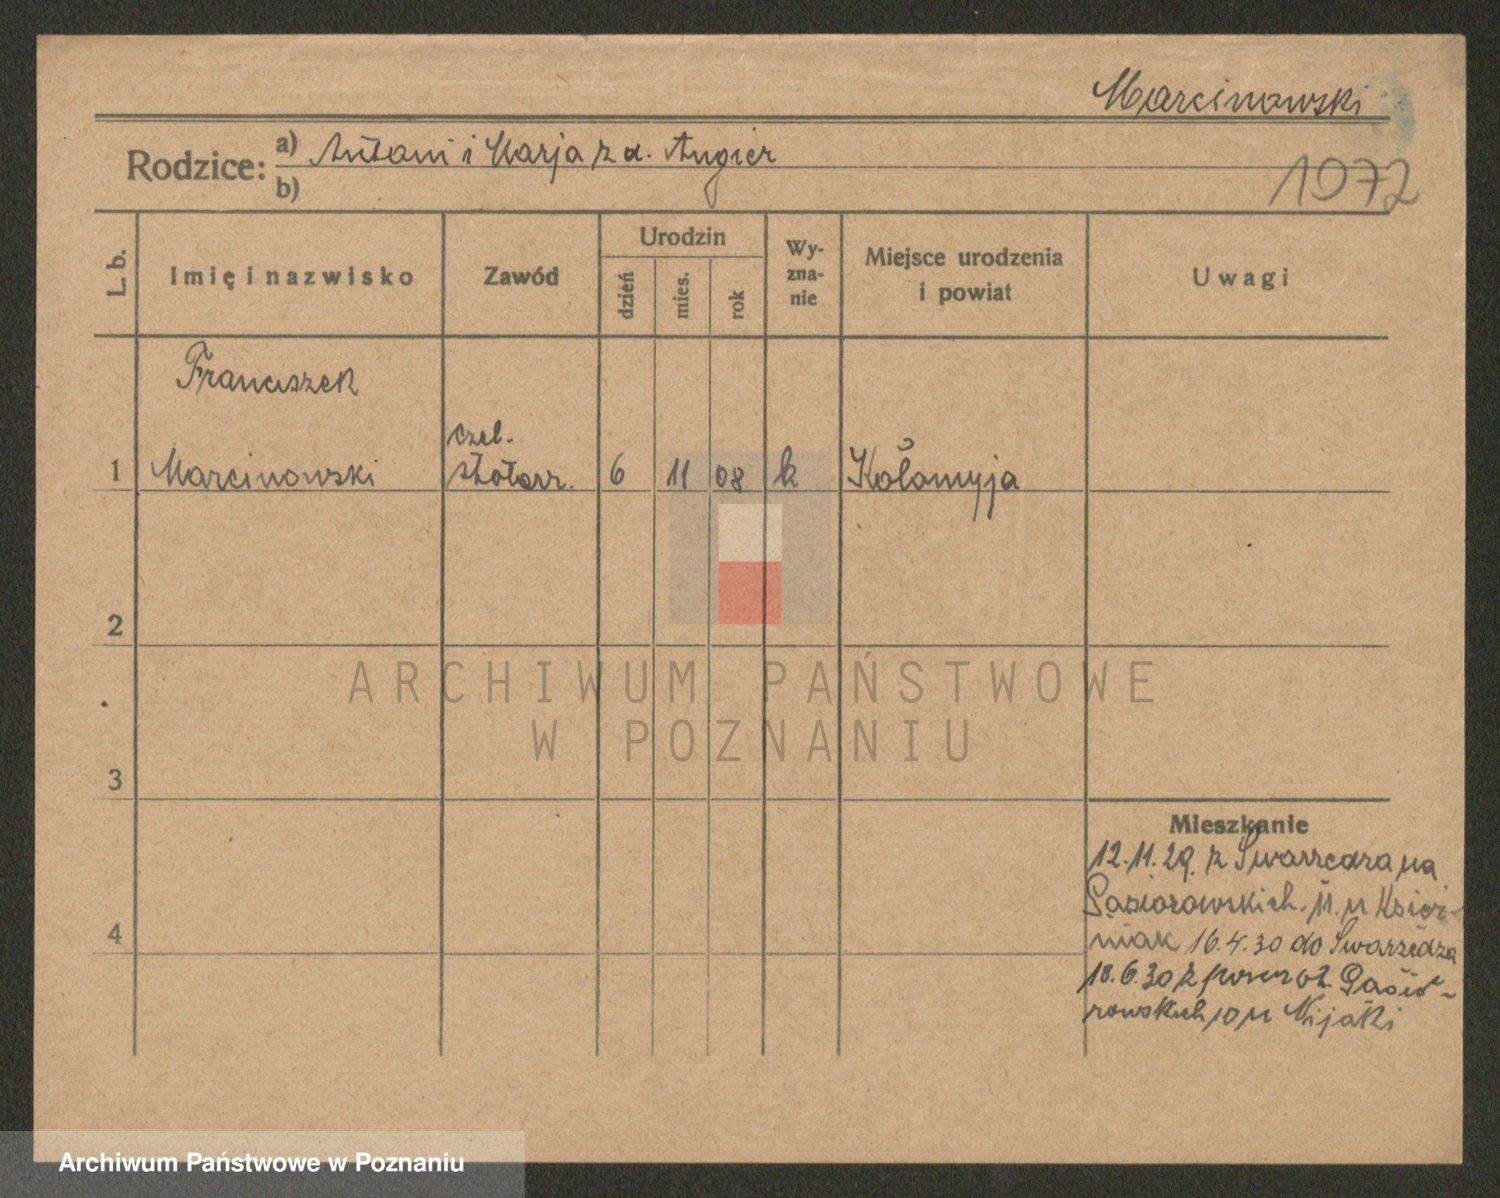 Marcinowski
Rodzice: a) Antoni i Marja z d. Angier
b)
1072
L. b.
Imię i nazwisko
Zawód
Urodzin
dzień
mies.
rok
Wy-
zna-
nie
Miejsce urodzenia
i powiat
Uwagi
Franciszek
czel.
1 Marcinowski stolarz. 6 11 08 k Kołomyja
2
ARCHIWUM PAŃSTWOWE
W POZNANIU
3
Mieszkanie
12.11.29. z Swarzędza na
Gąsiorowskich. 11. u
4
16.4.30 do Swarzędza
18.6.30 z
rowskich 10 u
Archiwum Państwowe w Poznaniu